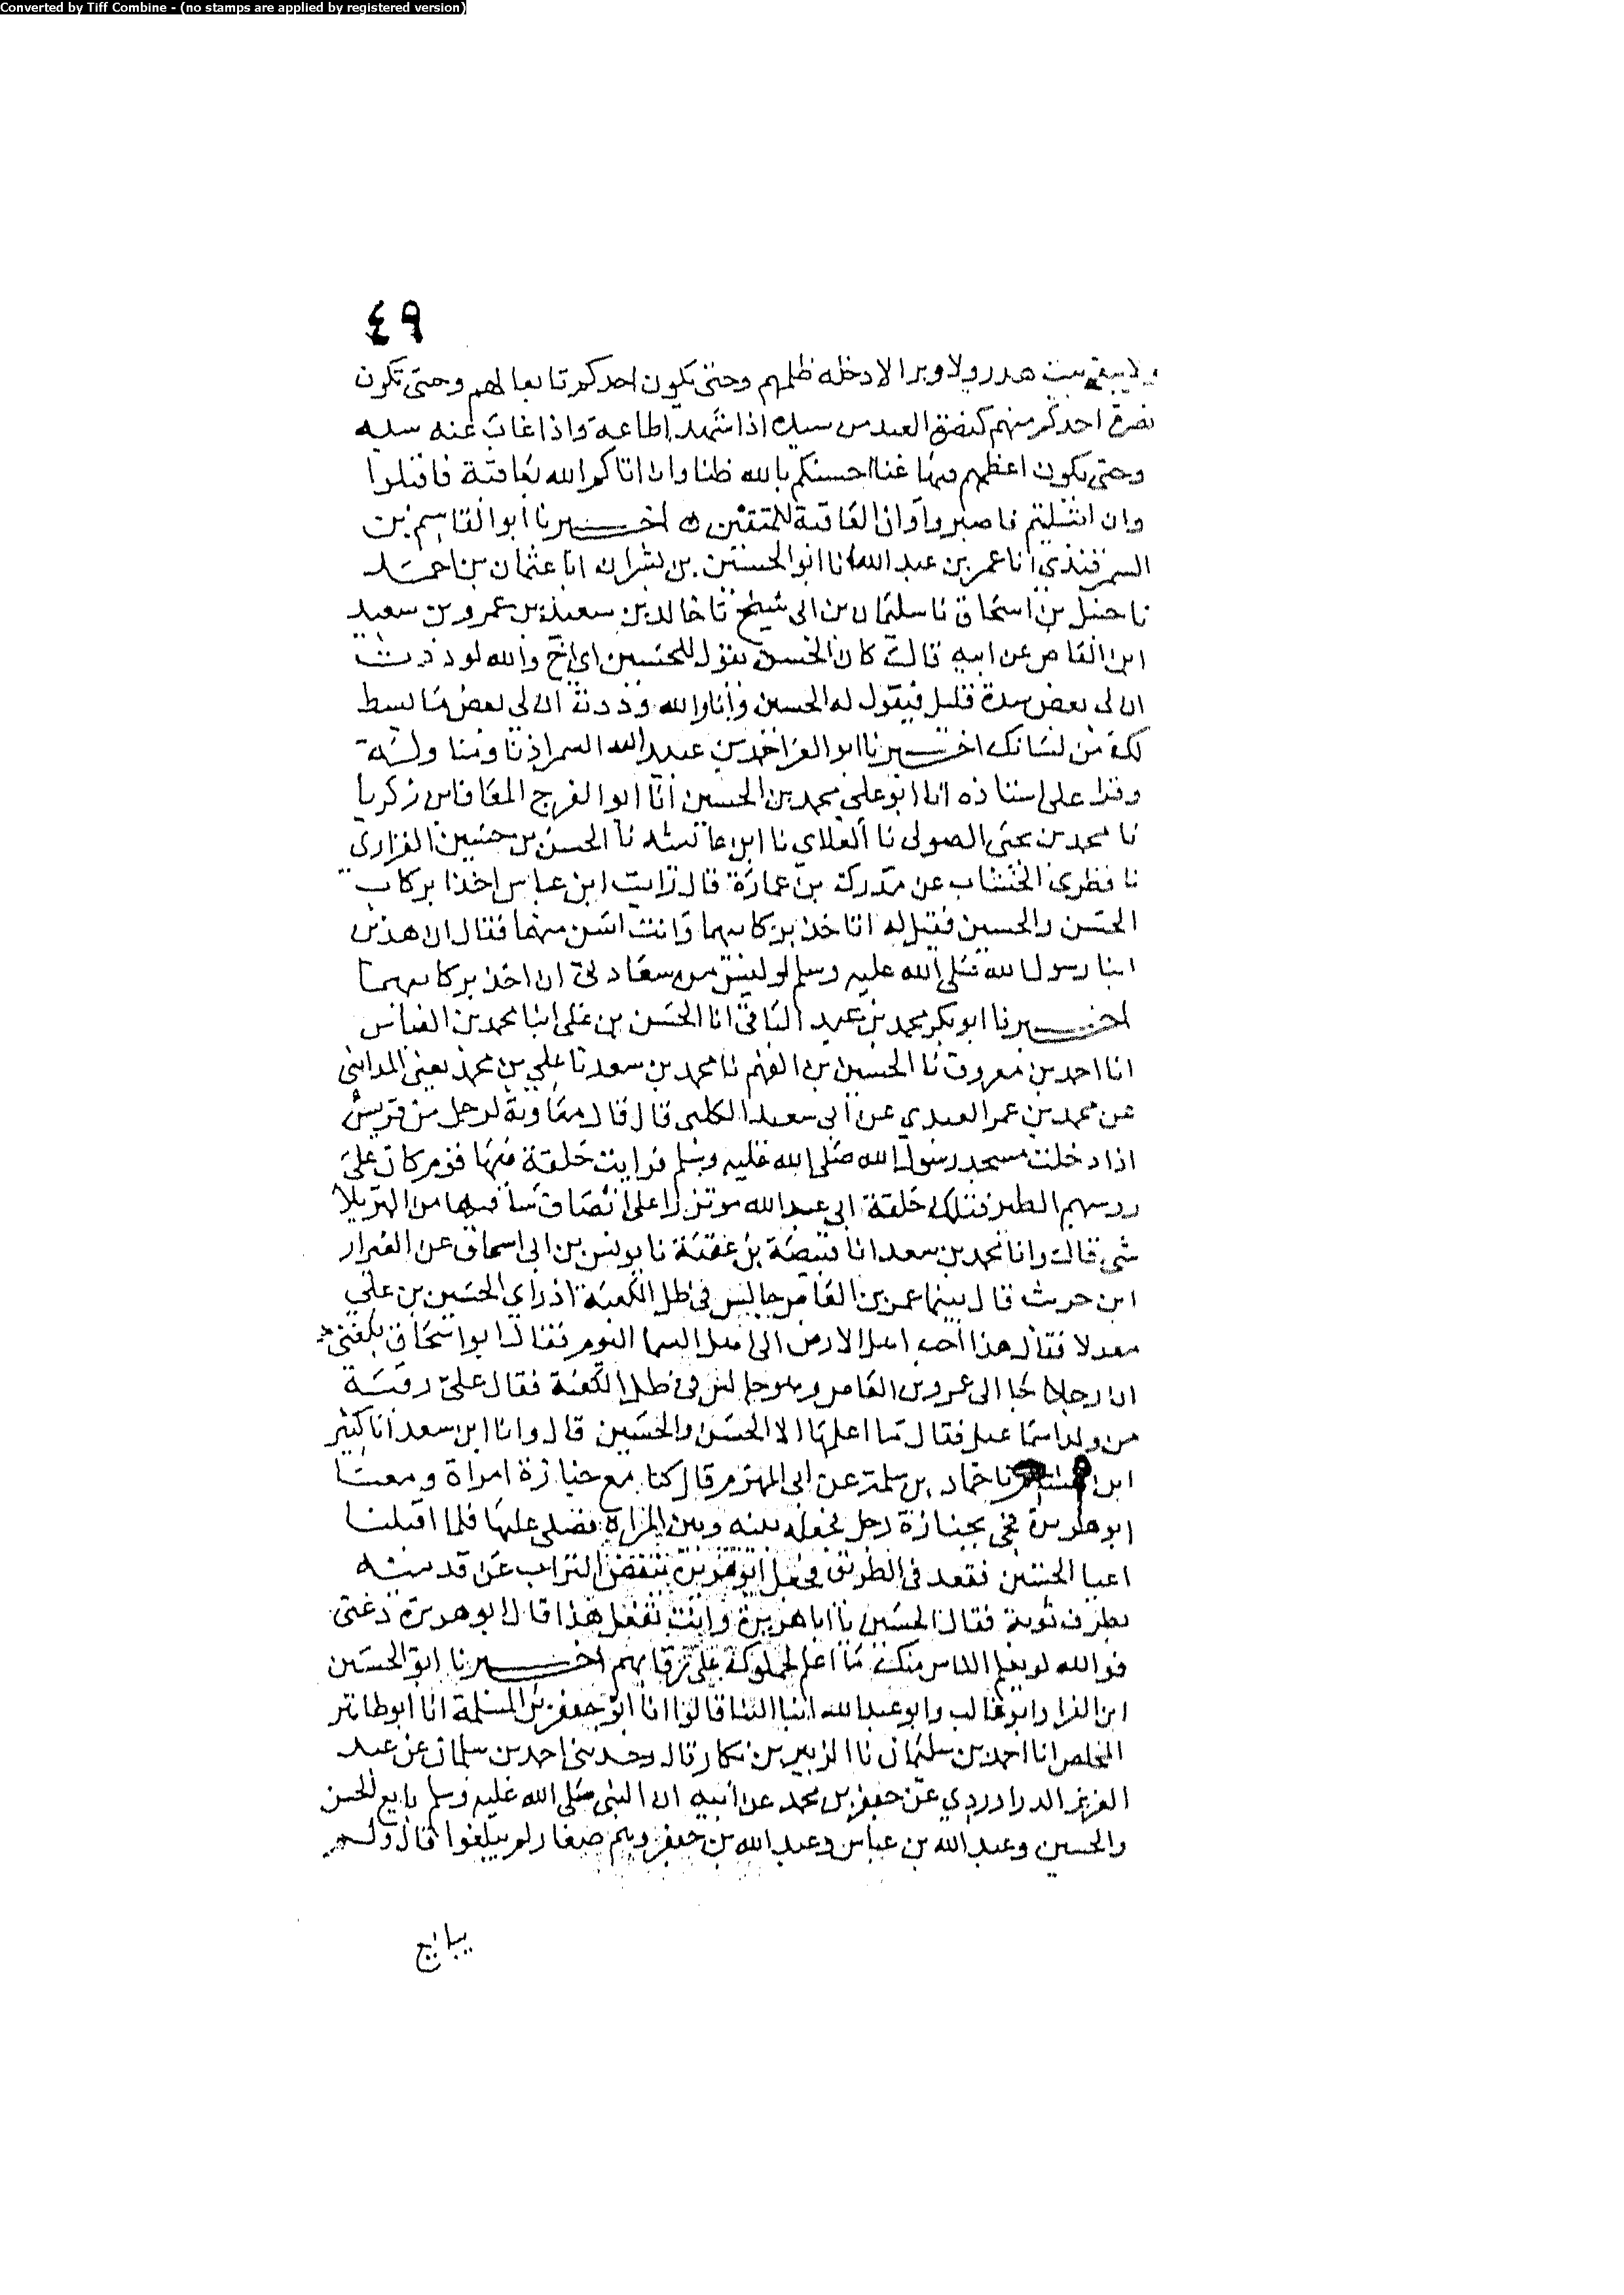 Converted by Tiff Combine - (no stamps are applied by registered version)
٤٩
لا يبقى بيت مدر ولا وبر الا دخله ظلمهم وحتى يكون احدكم تابعا لهم وحتى تكون
نصرة احدكم منهم كنصرة العبد من سيده اذا شهد اطاعه واذا غاب عنه سبه
وحتى يكون اعظمهم فيها غنا احسنكم بالله ظنا وان اتاكم الله بعافية فاقبلوا
وان ابتليتم فاصبروا وان العاقبة للمتقين ه اخبرنا ابو القاسم بن
السمرقندي انا عمر بن عبد الله انا ابو الحسين بن بشران انا عثمان بن احمد
نا حنبل بن اسحاق نا سليمان بن ابى شيخ نا خالد بن سعيد بن عمرو بن سعيد
ابن العاص عن ابيه قال كان الحسن يقول للحسين اي اخ والله لوددت
ان لى بعض شدة قلبك فيقول له الحسين وانا والله وددت ان لى بعض ما بسط
لك من لسانك اخبرنا ابو العز احمد بن عبيد الله السم اذنا ومناولة
وقرا على اسناده انا ابو علي محمد بن الحسين انا ابو الفرج المعافا بن زكريا
نا محمد بن يحيى الصولى نا الغلابي نا ابن عائشه نا الحسن بن حسين الفزارى
نا قطرى الخشاب عن مدرك بن عمارة قال رايت ابن عباس اخذا بركاب
الحسن والحسين فقيل له اتاخذ بركابهما وانت اسن منهما فقال ان هذين
ابنا رسول الله صلى الله عليه وسلم او ليس من سعادتى ان اخذ بركابهما
اخبرنا ابو بكر محمد بن عبد الباقى انا الحسن بن على انبا محمد بن العباس
انا احمد بن معروف نا الحسين بن الفهم نا محمد بن سعد نا علي بن محمد يعنى المدائنى
عن محمد بن عمر العبدي عن ابى سعيد الكلبى قال قال معاوية لرجل من قريش
اذا دخلت مسجد رسول الله صلى الله عليه وسلم فرايت حلقة فيها قوم كان على
روسهم الطير فتلك حلقة ابى عبد الله موتزرا على انصاف سا فيها من الهزيلا
شى قال وانا محمد بن سعد انا قبيصة بن عقبة نا يونس بن ابى اسحاق عن العيزار
ابن حريث قال بينما عمرو بن العاص جالس فى ظل الكعبة اذ راي الحسين بن علي
مقبلا فقال هذا احب اهل الارض الى اهل السما اليوم فقال ابو اسحاق بلغنى
ان رجلا جا الى عمرو بن العاص وهو جالس فى ظل الكعبة فقال على رقبة
من ولد اسماعيل فقال ما اعلمها الا الحسن والحسين قال وانا ابن سعد انا كثير
ابن هشام نا حماد بن سلمة عن ابى المهزم قال كنا مع جنازة امراة ومعنا
ابو هريرة فجى بجنازة رجل فجعله بينه وبين المراة فصلى عليها فلما اقبلنا
اعيا الحسين فقعد فى الطريق فجعل ابو هريرة ينفض التراب عن قدميه
بطرف ثوبه فقال الحسين يا ابا هريرة وانت تفعل هذا قال ابو هريرة دعنى
فوالله لو يعلم الناس منك ما اعلم لحملوك على رقابهم اخبرنا ابو الحسين
ابن الفرا وابو غالب وابو عبد الله ابنا البنا قالوا انا ابو جعفر بن المسلمة انا ابو طاهر
المخلص انا احمد بن سليمان نا الزبير بن بكار قال وحدثنى احمد بن سلمان عن عبد
العزيز الدراوردي عن جعفر بن محمد عن ابيه ان النبى صلى الله عليه وسلم بايع الحسن
والحسين وعبد الله بن عباس وعبد الله بن جعفر وهم صغار لم يبلغوا قال ولم
يبايع